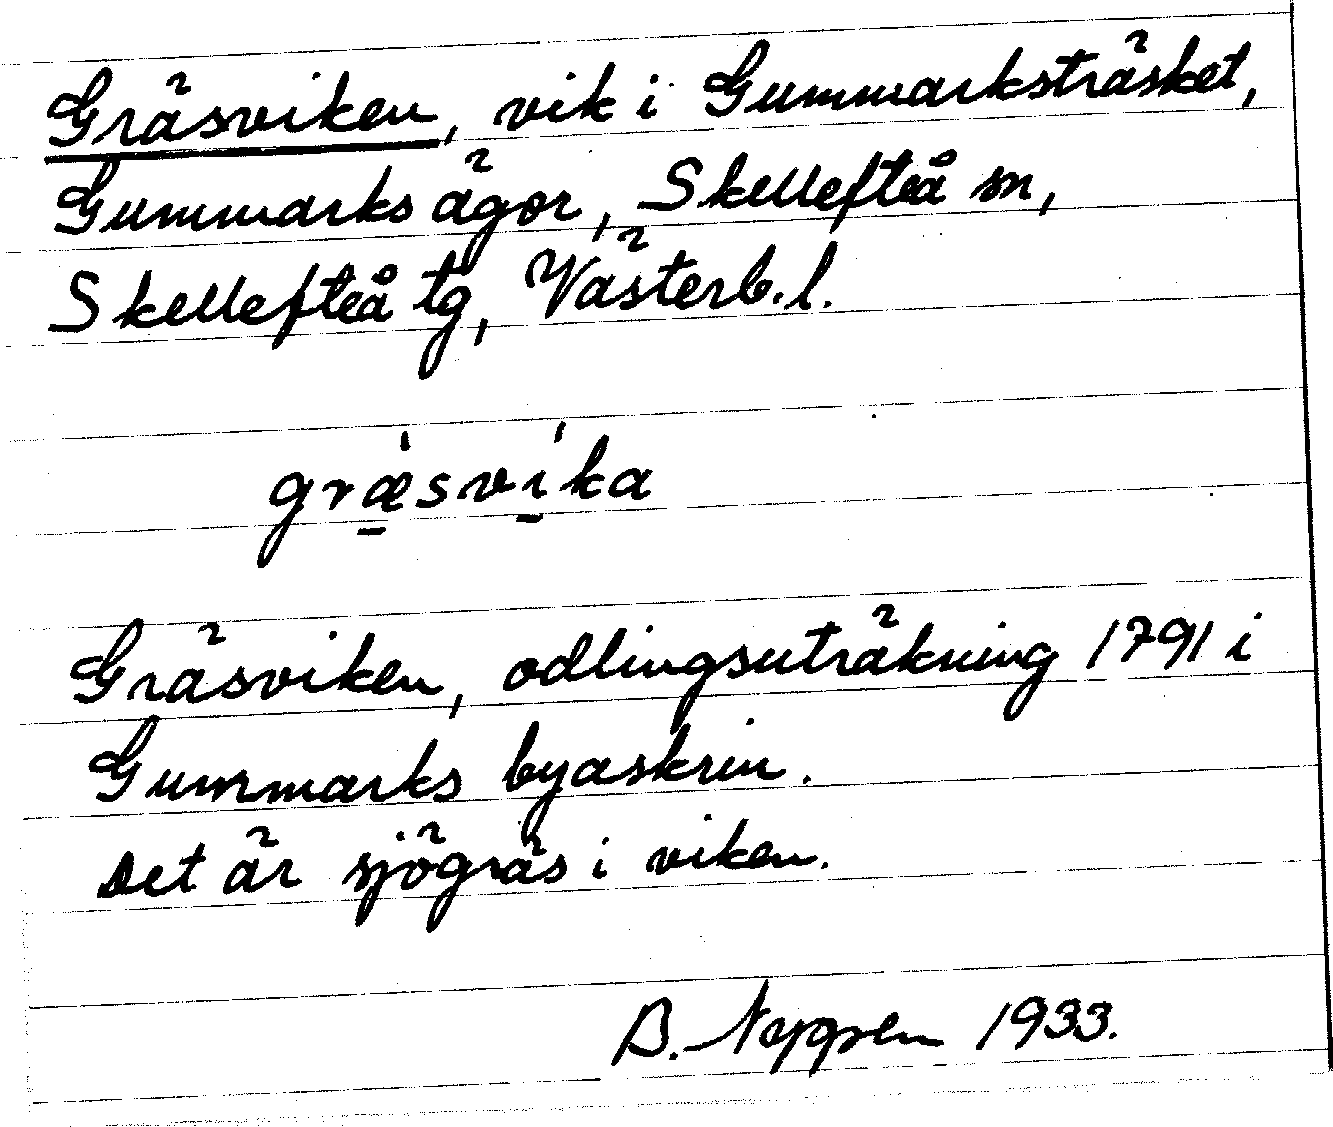 Gräsviken, vik i Gummarksträsket,
Gummarks ägor, Skellefteå sn,
Skellefteå tg, Västerb. l.
grǽ̱svı̱́ka
Gräsviken, odlingsuträkning 1791 i
Gummarks byaskrin.
Det är sjögräs i viken.
B. 1933.